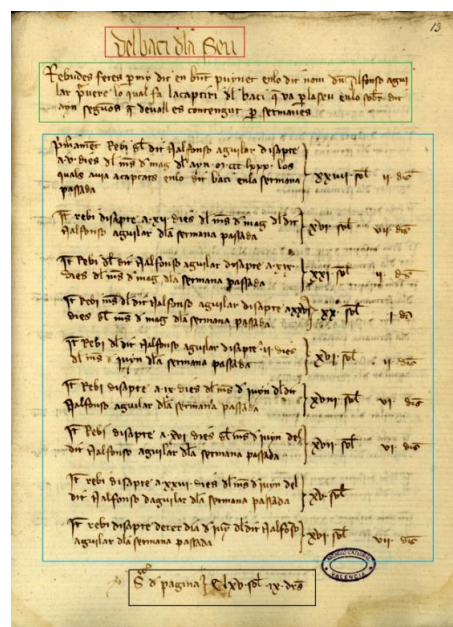 13
del baci dla Seu
Rebudes fetes per my dit en bnt puynet en lo dit nom dn Alfonso agui
lar prevere lo qual fa la captiri dl baci q va p la seu en lo sobre dit
ayn segons q devall es contengut p setmanes
Primament Rebi dl dit Nalfonso aguilar disapte
a v dies dl mes d mag dl ayn m ccc lxxx los
quals avia acaptats en lo dit baci en la semana
passada
xxvii sol ii ds
It rebi disapte a xii dies dl mes d mag dl dit
Nalfonso aguilar dla setmana passada
xvi sol vii ds
It Rebi dl dit Nalfonso aguilar disapte a xix
dies dl mes d mag dla setmana passada
xxi sol ii ds
It Rebi mes dl dit Nalfonso aguilar disapte a xxvi
dies dl mes d mag dla semana passada
xx sol i ds
It Rebi dl dit Nalfonso aguilar disapte ii dies
dl mes d juyn dla setmana passada
xvi sol ii ds
It Rebi disapte a ix dies dl mes d juyn dl dit
Nalfonso aguilar dla semana passada
xviii sol vi ds
It Rebi disapte a xvi dies dl mes d juyn del
dit Nalfonso aguilar dla setmana passada
xvii sol vi ds
It rebi disapte a xxiii dies dl mes d juyn del
dit Nalfonso daguilar dla setmana passada
xv sol
It rebi disapte derer dia d juyn dl dit Nalfonso
aguilar dla setmana passada
xvi sol vii ds
VALENCIA
Sma d pagina Clxv sol ix drs